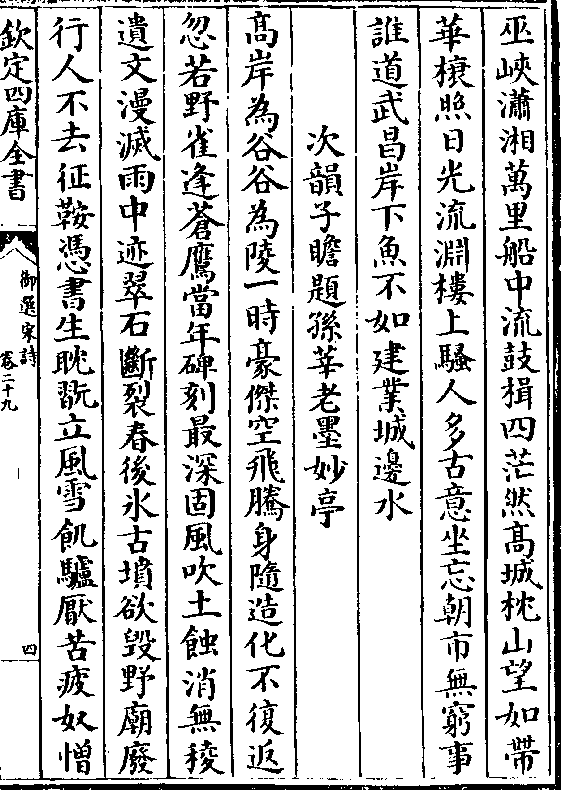 巫峽瀟湘萬里船中流鼓楫四茫然高城枕山望如帶
華榱照日光流淵樓上騷人多古意坐忘朝市無窮事
誰道武昌岸下魚不如建業城邊水
次韻子瞻題孫莘老墨妙亭
高岸為谷谷為陵一時豪傑空飛騰身隨造化不復返
忽若野雀逢蒼鷹當年碑刻最深固風吹土蝕消無稜
遺文漫滅雨中迹翠石斷裂春後氷古墳欲毀野廟廢
行人不去征鞍憑書生眈翫立風雪飢驢厭苦疲奴憎
欽定四庫全書
御選宋詩
卷二十九
四